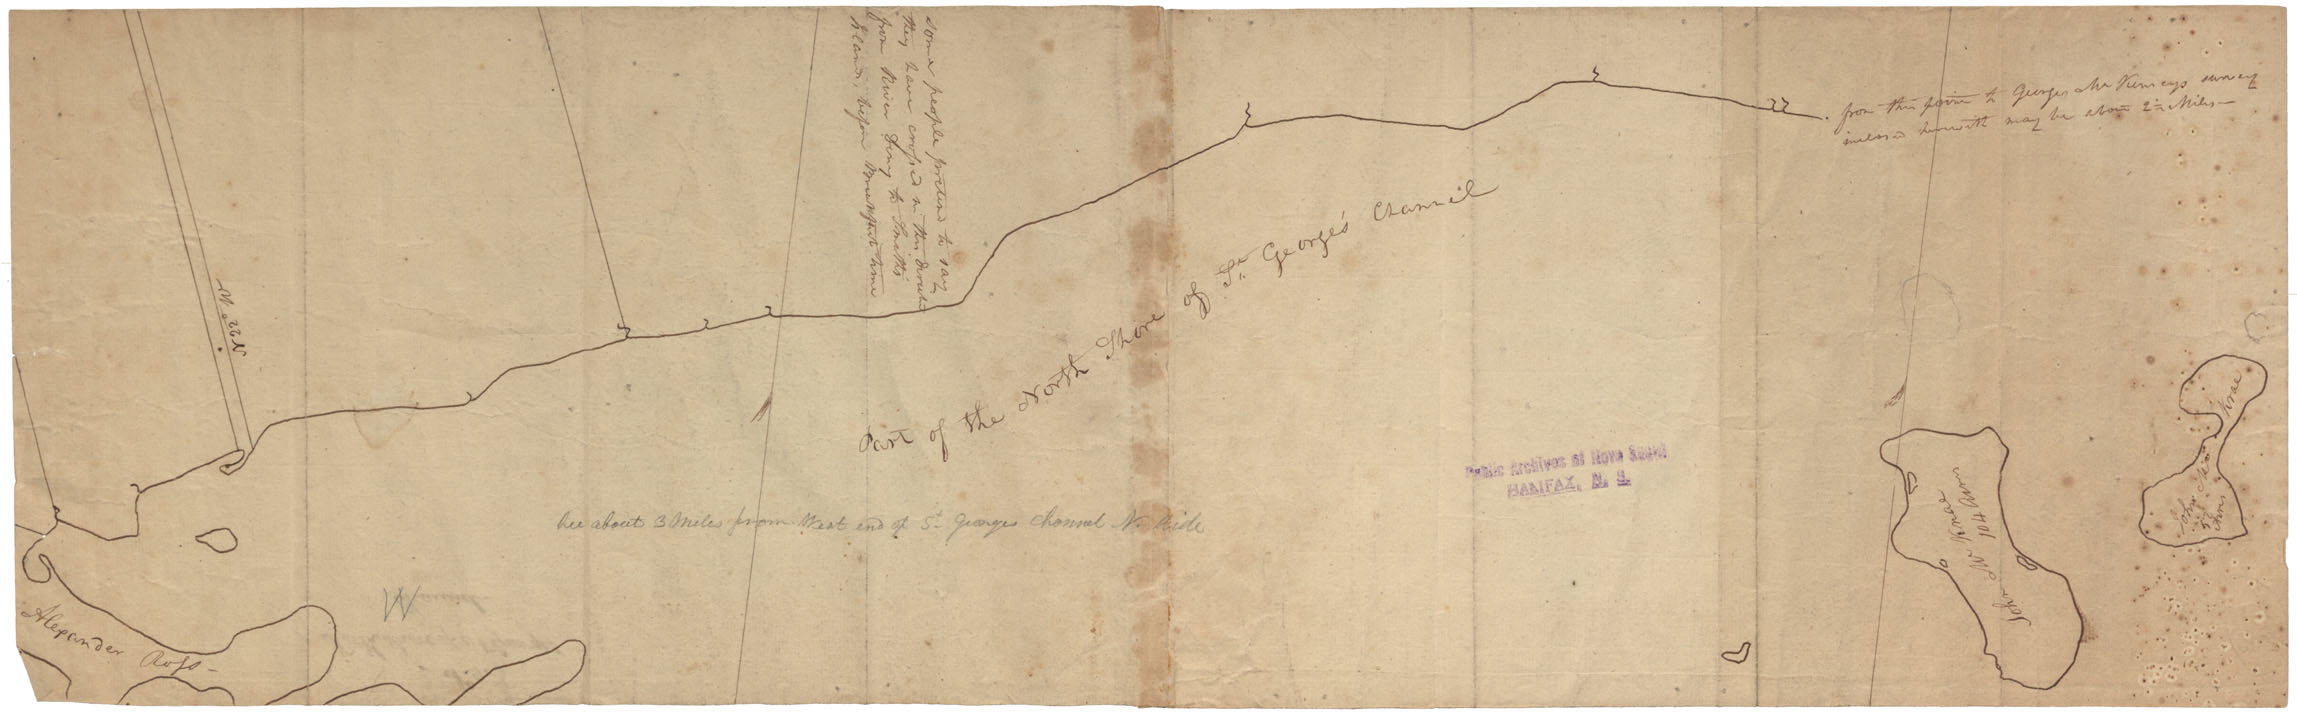 some people pretend to say
they have crossed in this direction
from River Deny to Smiths
Island, before breakfast time
from this point to Georges McKenzeys survey
inclosed herewith may be about 2½ Miles—
Part of the North Shore of St. George's Channel
N 22° W
Public Archives of Nova Scotia
HALIFAX, N. S.
about 3 Miles from West end of St. Georges Channel N. Side
W
Alexander Ross—
John McKrae
104 Acres
John Mc Krae
Acres